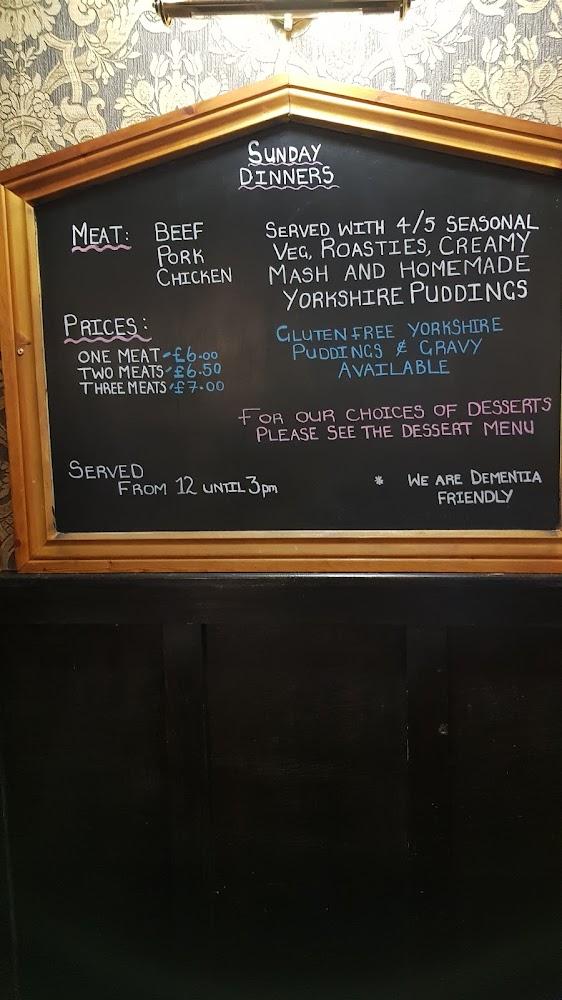 SUNDAY
DINNERS
MEAT: BEEF
PORK
CHICKEN
SERVED WITH 4/5 SEASONAL
VEG, ROASTIES, CREAMY
MASH AND HOMEMADE
YORKSHIRE PUDDINGS
PRICES:
ONE MEAT-£6.00
TWO MEATS-£6.50
THREE MEATS-£7.00
GLUTEN FREE YORKSHIRE
PUDDINGS & GRAVY
AVAILABLE
FOR OUR CHOICES OF DESSERTS
PLEASE SEE THE DESSERT MENU
SERVED
FROM 12 UNTIL 3pm
* WE ARE DEMENTIA
FRIENDLY